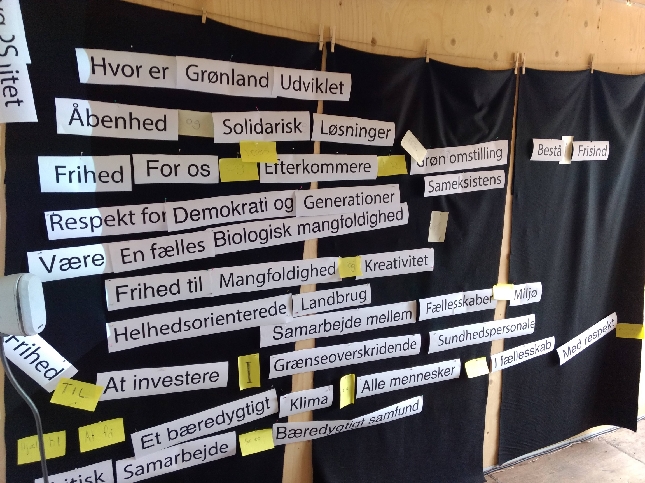 Hvor er Grønland Udviklet
Åbenhed og Solidarisk Løsninger
Frihed For os Efterkommere Grøn omstilling Bestå Frisind
Sameksistens
Respekt for Demokrati og Generationer
Være En fælles Biologisk mangfoldighed
Frihed til Mangfoldighed og Kreativitet
Helhedsorienterede Landbrug Fællesskaber Miljø
Samarbejde mellem Sundhedspersonale
Frihed TIL At investere I Grænseoverskridende I fællesskab Med respekt
Alle mennesker
Et bæredygtigt Klima
Samarbejde Bæredygtigt samfund